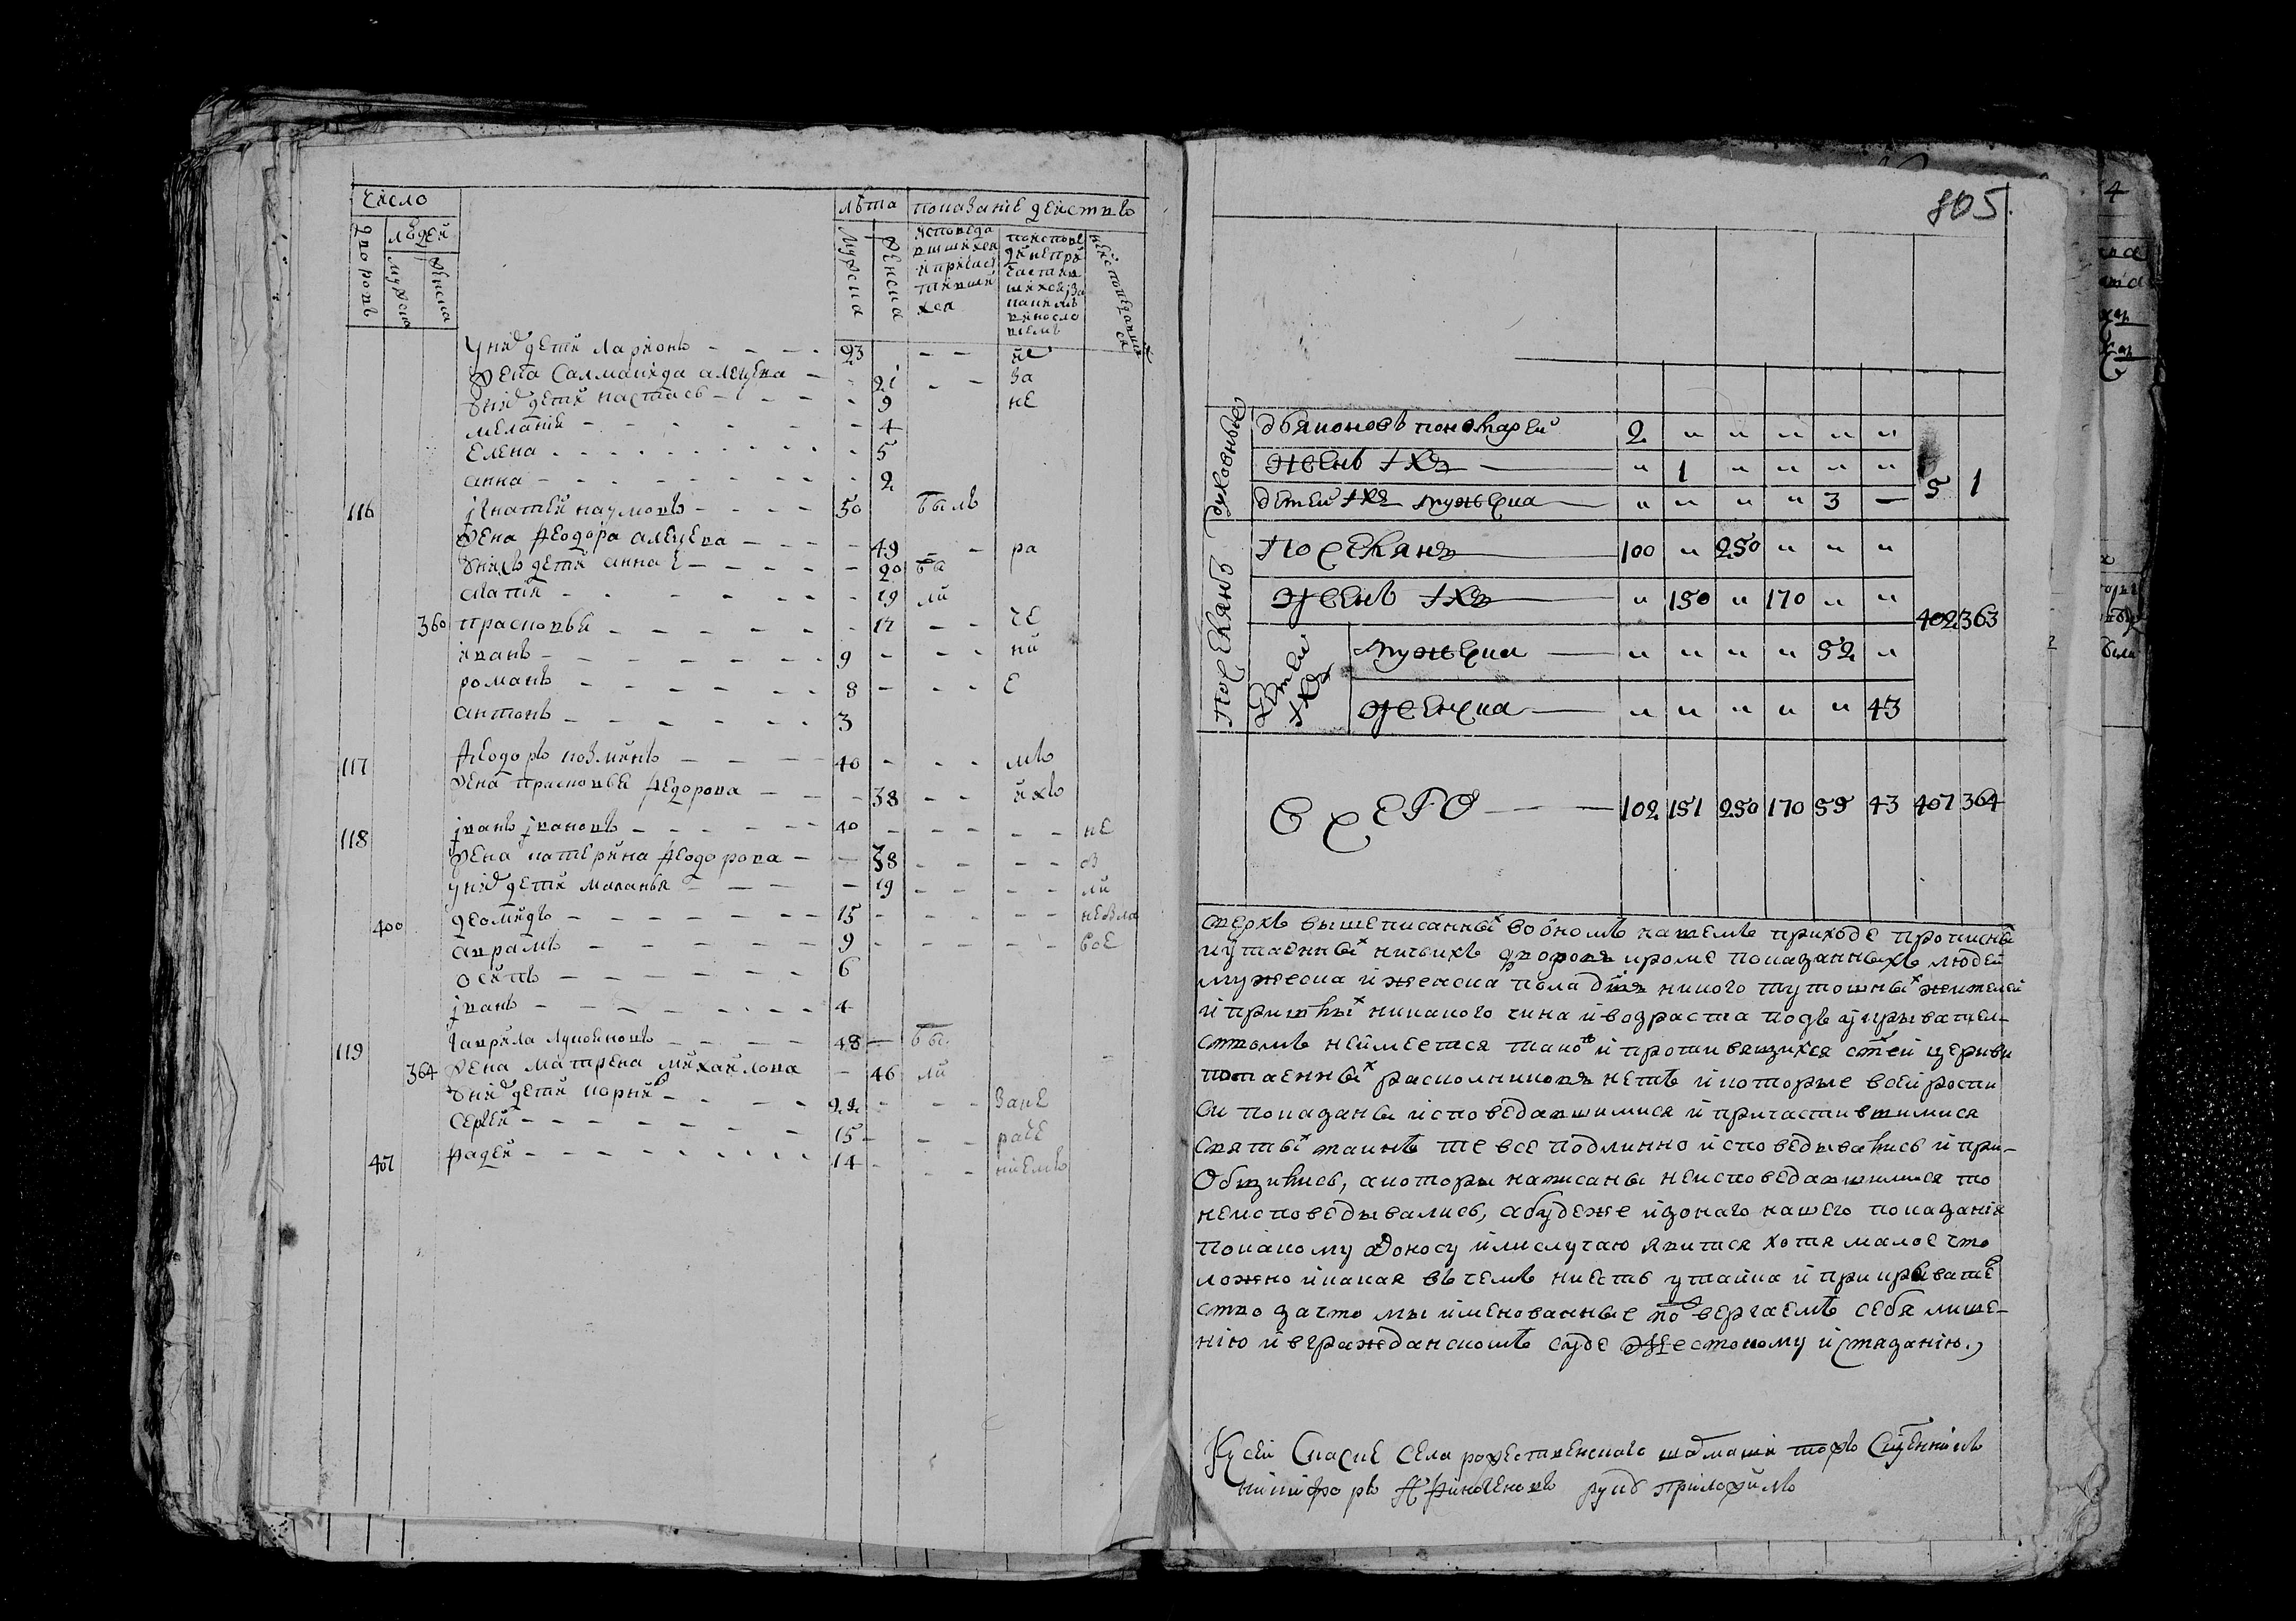 число
лѣта показание действъ
дворовъ
людей
мужска
женска
мужска
женска
исповеда вшихся и причас тивши хся
по исповеди не при частив шихся за каким винословием
не исповедавших ся
у них дети Ларионъ 23 не
жена Саломанида алецева 21 за
у них дети настась 9 не
мелания 4
елена 5
анна 2
116 игнатей наумовъ 50 былъ
жена феодора алецева 49 ра
у нихъ дети анна 20 бы
19 ли
360 прасковья 12 че
иванъ 9 ни
романъ 8 е
антонъ 3
117 феодоръ козминъ 40 мъ
жена прасковья федорова 38 ихъ
118 иванъ ивановъ 40 не
жена катерина феодорова 38
у них дети маланья 19 ли
400 деомидъ 15
аврамъ 9
осипъ 6
иванъ 4
119 гаврила 48 бы
364 жена матрена михайлова 46 ли
у них дети 22 за не
сергей 15 раче
407 фадей 14 ниемъ
805.
духовные
дьяконовъ пономарей 2 " " " " "
женъ ихъ " 1 " " " "
детей ихъ мужска " " " " 3 —
5 1
поселянъ
Поселянъ 100 " 250 " " "
женъ ихъ " 150 " 170 " "
детей ихъ
мужска " " " " 52 "
женска " " " " " 43
402 363
Всего 102 151 250 170 55 43 407 364
сверхъ вышеписанных во ономъ нашемъ приходе прописны
и утаенных ничьихъ дворовъ кроме показанныхъ людей
мужеска и женска пола никого тутошных жителей
и пришлых никакого чина и возраста подъ укрывател
стомъ неимеется тако и противящихся стей церкви
потаенных расколниковъ нетъ и которые всей роспи
си показаны исповедавшимися и причастившимися
святых таинъ те все подлинно исповедывались и при-
общились, а которы написаны неисповедавшимися то
неисповедывались, а буде же изонаго нашего показания
по какому доносу или случаю явится хотя малое что
ложно и какая в чемъ ниесть утайка и прикрывате
ство за что мы именованные по вергаемъ себя лише-
нию и в гражданскомъ суде жестокому истязанию.
К сей Скаске села рождественскаго шатмаши тожъ Сщенникъ
никифоръ руку приложилъ